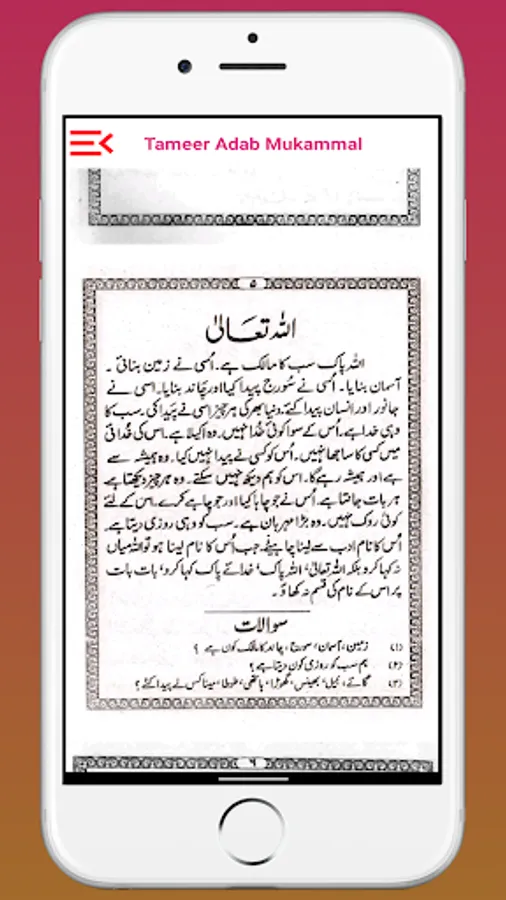 Tameer Adab Mukammal
۵
اللہ تعالیٰ
اللہ پاک سب کا مالک ہے۔ اُسی نے زمین بنائی۔
آسمان بنایا۔ اُسی نے سُورج پیدا کیا اور چاند بنایا۔ اسی نے
جانور اور انسان پیدا کئے۔ دنیا بھر کی ہر چیز اسی نے پیدا کی۔ سب کا
وہی خدا ہے۔ اُس کے سوا کوئی خُدا نہیں۔ وہ اکیلا ہے۔ اس کی خُدائی
میں کسی کا ساجھا نہیں۔ اُس کو کسی نے پیدا نہیں کیا۔ وہ ہمیشہ سے
ہے اور ہمیشہ رہے گا۔ اس کو ہم دیکھ نہیں سکتے۔ وہ ہر چیز دیکھتا ہے
ہر بات جانتا ہے۔ اُس نے جو چاہا کیا اور جو چاہے کرے۔ اس کے لئے
کوئی روک نہیں۔ وہ بڑا مہربان ہے۔ سب کو وہی روزی دیتا ہے۔
اُس کا نام ادب سے لینا چاہیئے۔ جب اُس کا نام لینا ہو تو اللہ میاں
نہ کہا کرو بلکہ اللہ تعالیٰ، اللہ پاک، خدائے پاک کہا کرو، بات بات
پر اس کے نام کی قسم نہ کھاؤ۔
سوالات
(۱) زمین، آسمان، سورج، چاند کا مالک کون ہے ؟
(۲) ہم سب کو روزی کون دیتا ہے ؟
(۳) گائے، بیل، بھینس، گھوڑا، ہاتھی، طوطا، مینا کس نے پیدا کئے ؟
۶